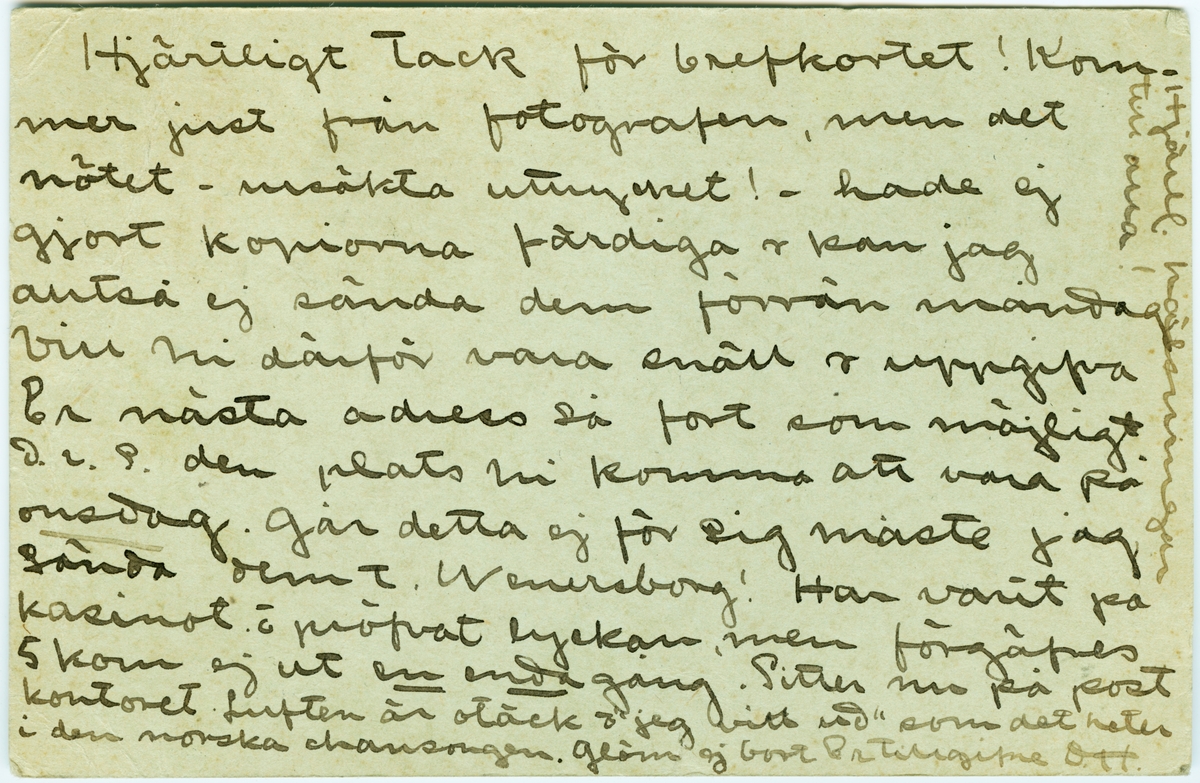 Hjärtligt Tack för brefkortet! Kom-
mer just från fotografen, men det
nötet - ursäkta uttrycket! - hade ej
gjort kopiorna färdiga & kan jag
alltså ej sända dem förrän måndag
Vill Ni därför vara snäll & uppgifva
Er nästa adress så fort som möjligt
D.v.S. den plats Ni komma att vara på
onsdag. Går detta ej för sig måste jag
sända dem t. Wenersborg! Har varit på
kasinot. & pröfvat lyckan, men förgäfves
5 kom ej ut en enda gång. Sitter nu på post
kontoret. Luften är otäck & "jeg vill ud" som det heter
i den norska chansongen. Glöm ej bort Er tillgifne D.H.
Hjärtl. hälsningar
till alla!